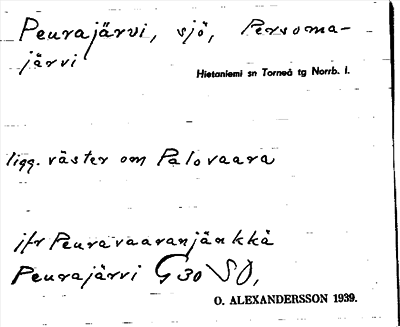 Peurajärvi, sjö, Persoma-
järvi
Hietaniemi sn Torneå tg Norrb. l.
ligg. väster om Palovaara
jfr Peuravaaranjänkkä
Peurajärvi G30 SO,
O. ALEXANDERSSON 1939.